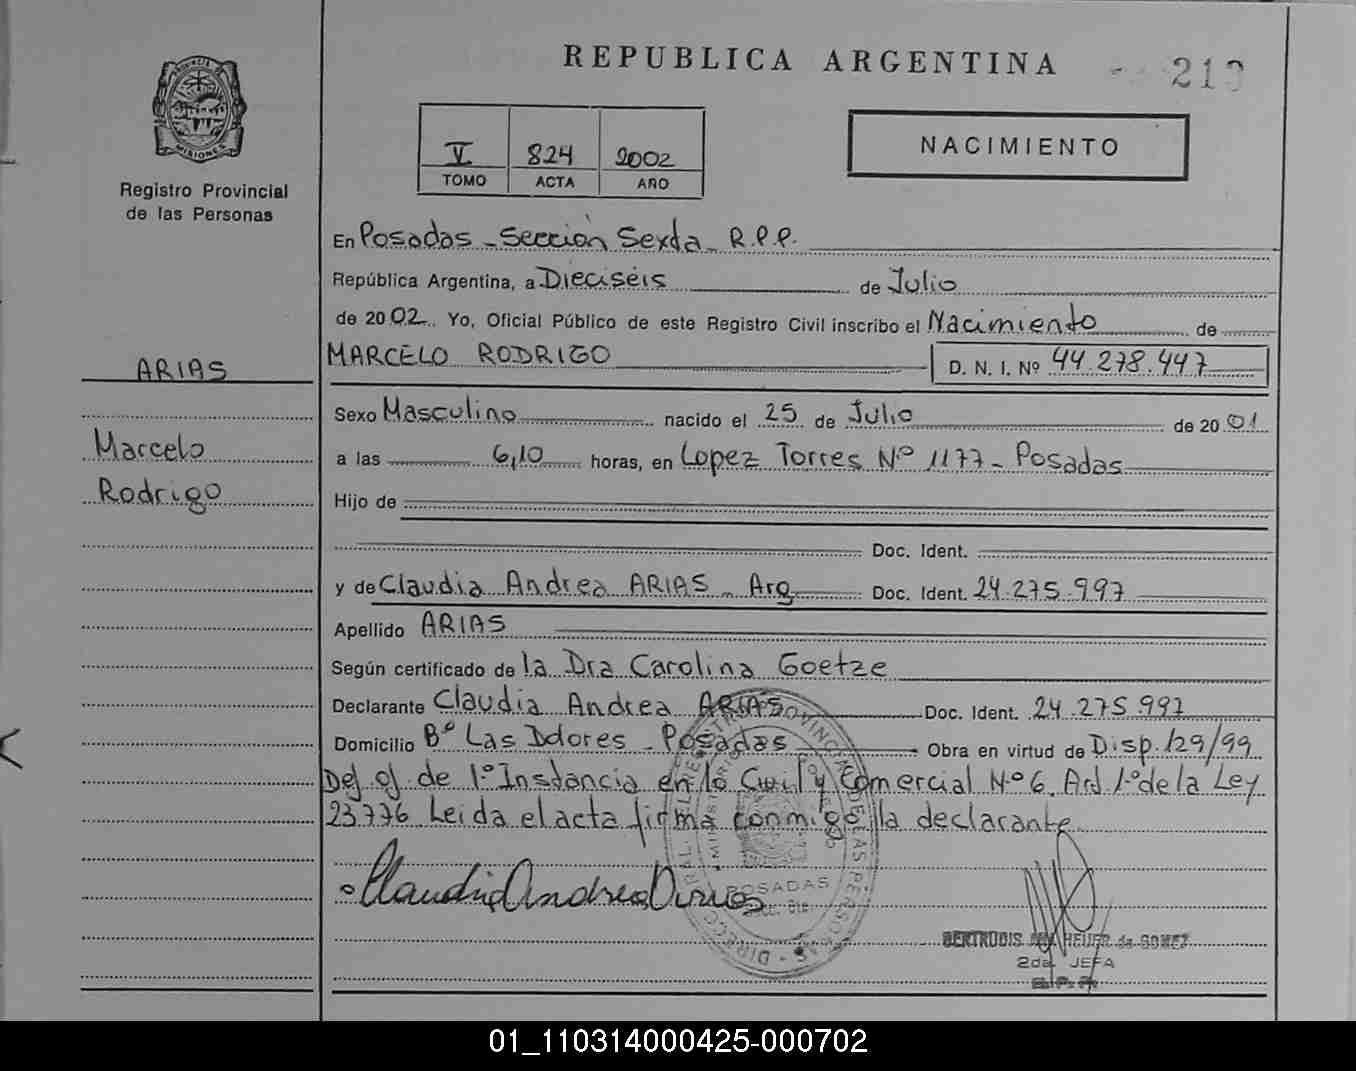 REPUBLICA ARGENTINA
213
PROVINCIA DE
MISIONES
Registro Provincial
de las Personas
V 824 2002
TOMO ACTA AÑO
NACIMIENTO
En Posadas - Sección Sexta - R.P.P.
República Argentina, a Dieciséis de Julio
de 2002. Yo, Oficial Público de este Registro Civil inscribo el Nacimiento de
MARCELO RODRIGO D. N. I. Nº 44.278.447
ARIAS
Marcelo
Rodrigo
Sexo Masculino nacido el 25 de Julio de 2001
a las 6,10 horas, en Lopez Torres Nº 1177 - Posadas
Hijo de
Doc. Ident.
y de Claudia Andrea ARIAS - Arg Doc. Ident. 24.275.997
Apellido ARIAS
Según certificado de la Dra Carolina Goetze
Declarante Claudia Andrea ARIAS Doc. Ident. 24.275.997
Domicilio Bº Las Dolores - Posadas Obra en virtud de Disp. 129/99
Def of. de 1º Instancia en lo Civil y Comercial Nº 6. Art 1º de la Ley
23776 Leida el acta firma conmigo la declarante
Claudia Andrea Arias
POSADAS
GERTRUDIS HEUER de GOMEZ
2da JEFA
R. P. P.
01_110314000425-000702